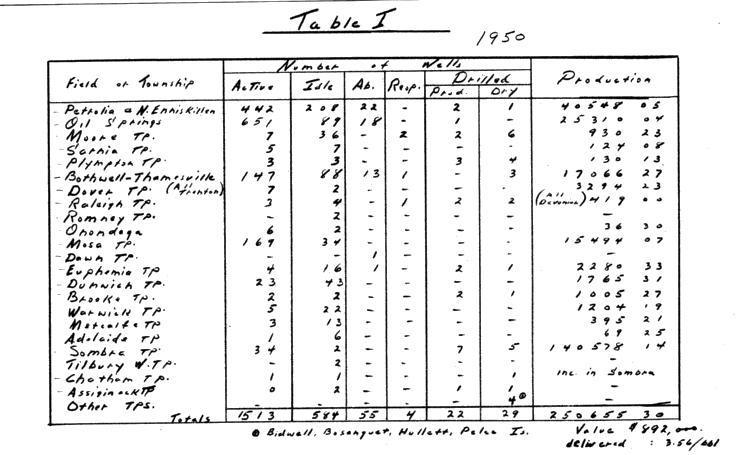 Table I
1950
Number of Wells
Field or Township Active Idle Ab. Reop. Drilled Production
Prod. Dry
- Petrolia & N. Enniskillen 442 208 22 - 2 1 40548 05
- Oil Springs 651 89 18 - 1 - 25310 04
- Moore TP. 7 36 - 2 2 6 930 23
- Sarnia TP. 5 7 - - - - 124 08
- Plympton TP. 3 3 - - 3 4 130 13
- Bothwell-Thamesville 147 88 13 1 - 3 17066 27
- Dover TP. (All Trenton) 7 2 - - - - 3294 23
- Raleigh TP. 3 4 - 1 2 2 (All Devonian) 419 00
- Romney TP. - 2 - - - - -
- Onondaga 6 2 - - - - 36 30
- Mosa TP. 169 34 - - - - 15494 07
- Dawn TP. - - 1 - - - -
- Euphemia TP 4 16 1 - 2 1 2280 33
- Dunwich TP. 23 43 - - - - 1765 31
- Brooke TP. 2 2 - - 2 1 1005 27
- Warwick TP. 5 22 - - - - 1204 19
- Metcalfe TP 3 13 - - - - 395 21
- Adelaide TP. 1 6 - - - - 69 25
- Sombra TP. 34 2 - - 7 5 140578 14
- Tilbury W. TP. - 2 - - - - -
- Chatham TP. 1 1 - - - 1 Inc. in Sombra
- Assiginack TP 0 2 - - 1 1 -
- Other TPs. - - - - - 4 -
Totals 1513 584 55 4 22 29 250655 30
Bidwell, Bosanquet, Hullett, Pelee Is. Value $892,000.
delivered : 3.56/bbl